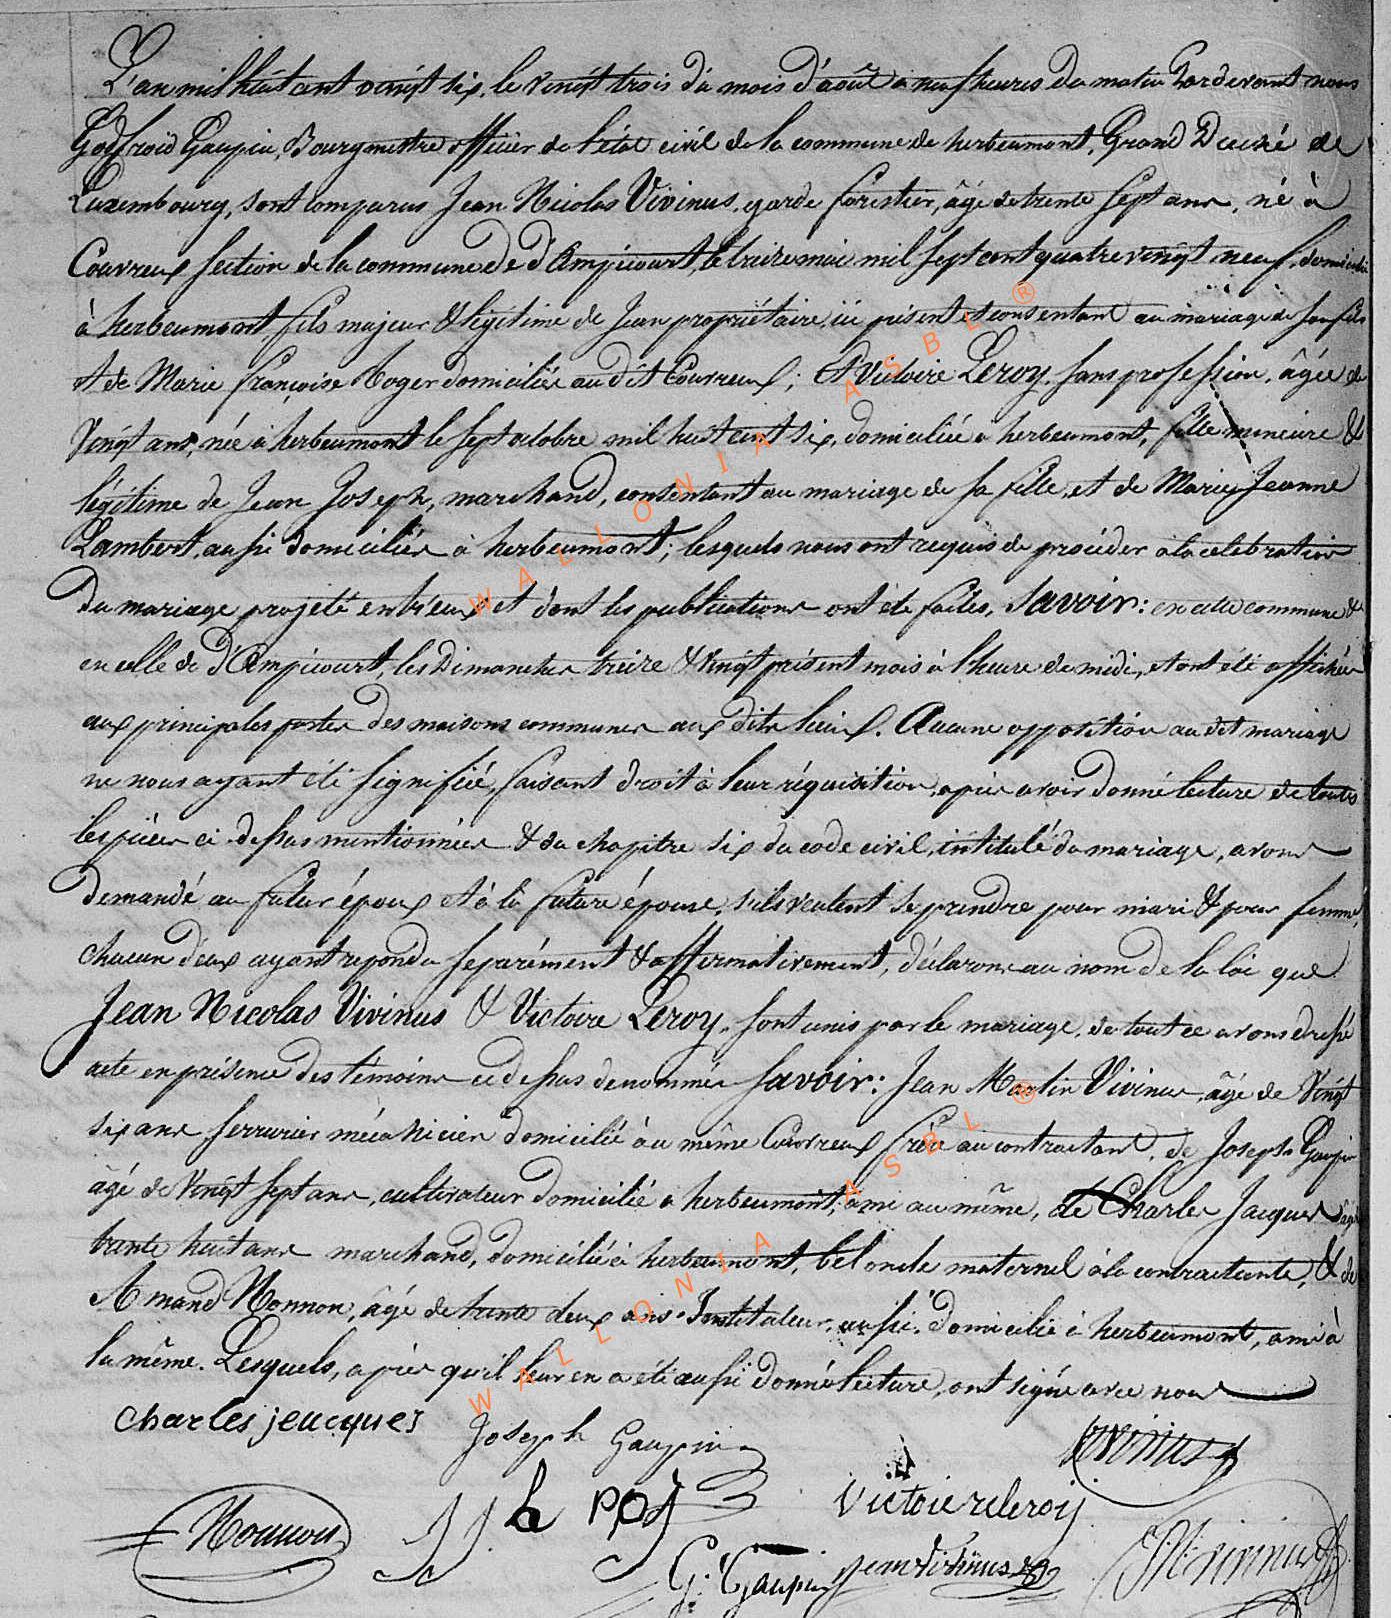 L'an mil huit cent vingt six, le vingt trois du mois d'août à neuf heures du matin Pardevant nous
Godfroid Gaupin, Bourgmestre officier de l'état civil de la commune de herbeumont, Grand Duché de
Luxembourg, sont comparus Jean Nicolas Vivinus, garde forestier, âgé de trente sept ans, né à
Couvreux section de la commune de d'Ampicourt, le treize mai mil sept cent quatre vingt neuf, domicilié
à herbeumont, fils majeur & légitime de Jean propriétaire, ici présent et consentant au mariage de son fils
et de Marie françoise Roger domiciliés au dit Couvreux; Et Victoire Leroy, sans profession, âgée de
Vingt ans, née à herbeumont le sept octobre mil huit cent six, domiciliée à herbeumont, fille mineure &
légitime de Jean Joseph, marchand, consentant au mariage de sa fille, et de Marie Jeanne
Lambert, aussi domiciliés à herbeumont; lesquels nous ont requis de procéder à la célébration
du mariage projeté entr'eux et dont les publications ont été faites, Savoir: en cette commune &
en celle de d'Ampicourt, les Dimanches treize & vingt présent mois à l'heure de midi, et ont été affichées
aux principales portes des maisons communes aux dits lieux. Aucune opposition au dit mariage
ne nous ayant été signifiée, faisant droit à leur réquisition, après avoir donné lecture de toutes
les pièces ci dessus mentionnées & du chapitre six du code civil, intitulé du mariage, avons
demandé au futur époux et à la future épouse, s'ils veulent se prendre pour mari & pour femme,
chacun d'eux ayant repondu séparément & affirmativement, déclarons au nom de la loi que
Jean Nicolas Vivinus & Victoire Leroy, sont unis par le mariage, de tout ce avons dressé
acte en présence des témoins ci dessas denommés Savoir: Jean Martin Vivinus, âgé de Vingt
six ans, serrurier mécanicien domicilié au même Couvreux frère au contractant, de Joseph Gaupin
âgé de Vingt sept ans, cultivateur domicilié à herbeumont, ami au même, de Charles Jacques âgé
trente huit ans marchand, domicilié à herbeumont, bel oncle maternel à la contractante, & de
Amand Monnon, âgé de trente deux ans Instituteur, aussi domicilié à herbeumont, ami à
la même. Lesquels, après qu'il leur en a été aussi donné lecture, ont signé avec nous
Charles jeacques Joseph Gaupin Vivinus
Monnon JJ le roy Victoire leroy
G. Gaupin Jean Vivinus JM Vivinus
WALLONIA ASBL ®
WALLONIA ASBL ®